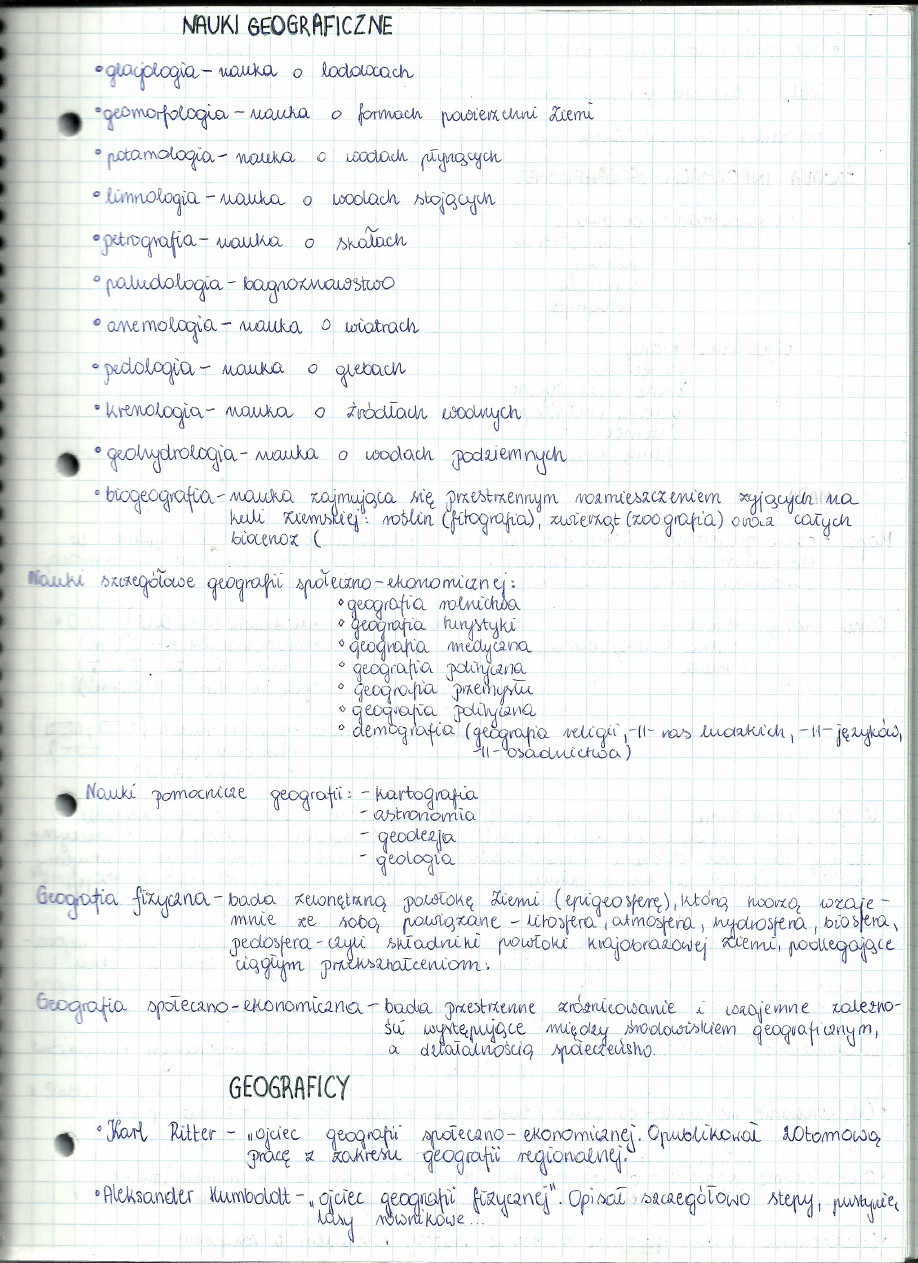 NAUKI GEOGRAFICZNE
• glacjologia - nauka o lodowcach
• geomorfologia - nauka o formach powierzchni Ziemi
• potamologia - nauka o wodach płynących
• limnologia - nauka o wodach stojących
• petrografia - nauka o skałach
• paludologia - bagnoznawstwo
• anemologia - nauka o wiatrach
• pedologia - nauka o glebach
• krenologia - nauka o źródłach wodnych
• geohydrologia - nauka o wodach podziemnych
• biogeografia - nauka zajmująca się przestrzennym rozmieszczeniem żyjących na
kuli ziemskiej: roślin (fitografia), zwierząt (zoografia) oraz całych
biocenoz (
Nauki szczegółowe geografii społeczno-ekonomicznej:
• geografia rolnictwa
• geografia turystyki
• geografia medyczna
• geografia polityczna
• geografia przemysłu
• geografia polityczna
• demografia (geografia religii, -II- ras ludzkich, -II- języków,
-II- osadnictwa)
Nauki pomocnicze geografii: - kartografia
- astronomia
- geodezja
- geologia
Geografia fizyczna - bada zewnętrzną powłokę Ziemi (epigeosferę), którą tworzą wzaje-
mnie ze sobą powiązane - litosfera, atmosfera, hydrosfera, biosfera,
pedosfera - czyli składniki powłoki krajobrazowej Ziemi, podlegające
ciągłym przekształceniom.
Geografia społeczno-ekonomiczna - bada przestrzenne zróżnicowanie i wzajemne zależno-
ści występujące między środowiskiem geograficznym,
a działalnością społeczeństw.
GEOGRAFICY
• Karl Ritter - "ojciec geografii społeczno-ekonomicznej. Opublikował 20tomową
pracę z zakresu geografii regionalnej."
• Aleksander Humboldt - „ojciec geografii fizycznej". Opisał szczegółowo stepy, pustynie,
lasy równikowe...